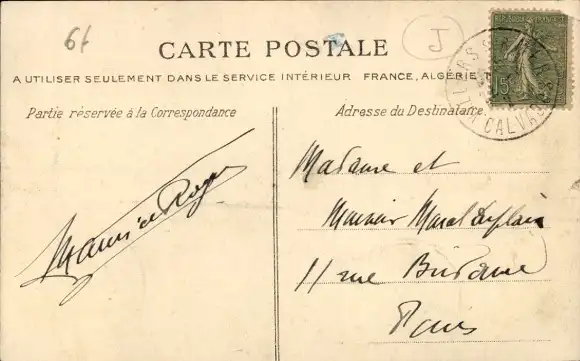 6f
J
CARTE POSTALE
A UTILISER SEULEMENT DANS LE SERVICE INTÉRIEUR FRANCE, ALGÉRIE
REPUBLIQUE FRANÇAISE
15
CALVADOS
Partie réservée à la Correspondance
Adresse du Destinataire
Maurice Roger
Madame et
Monsieur Marcel
11 rue
Paris